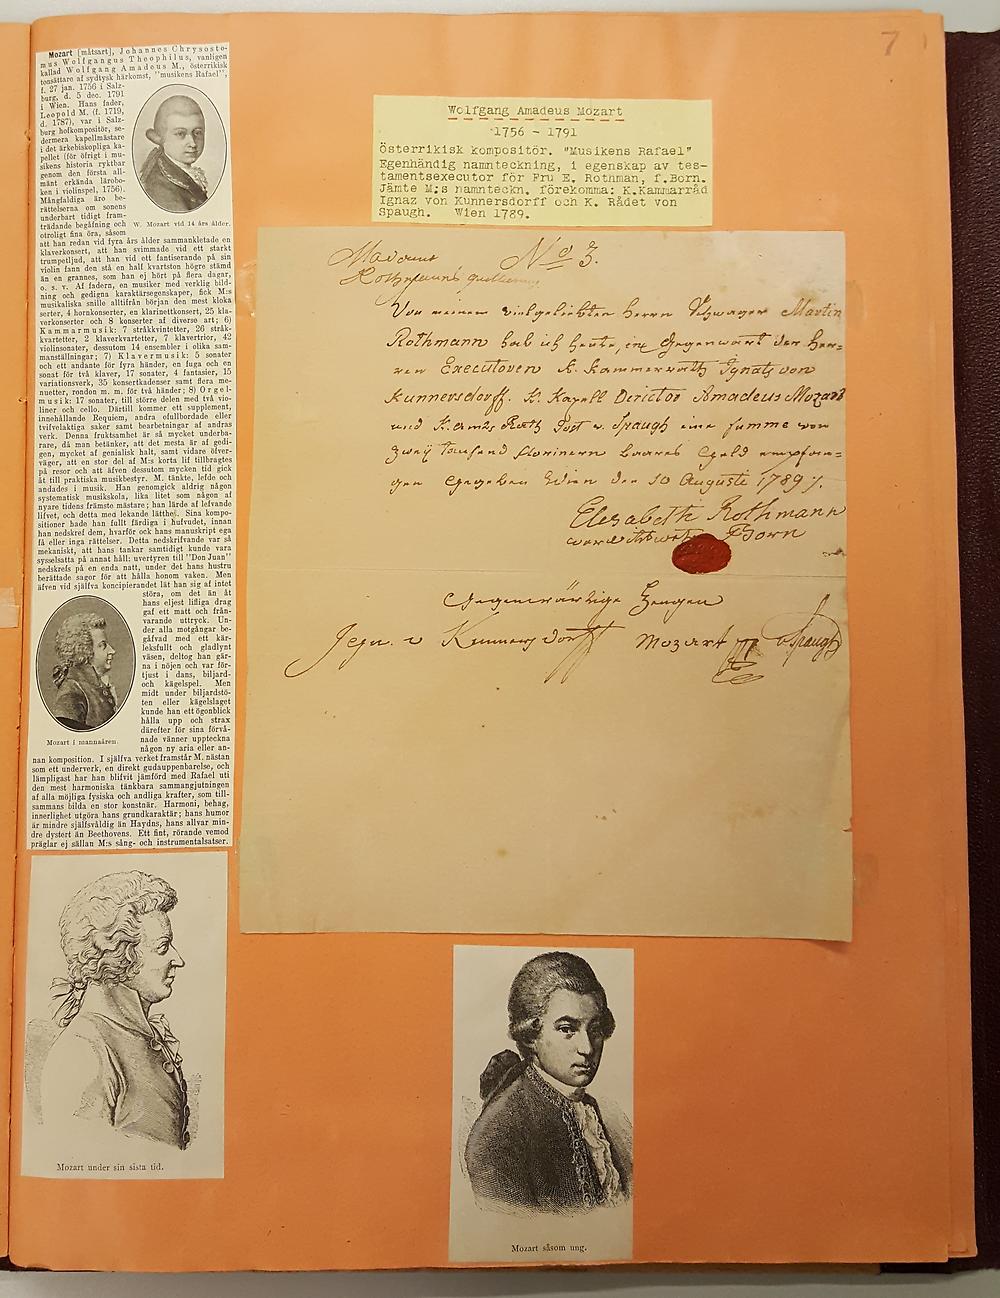 7
Mozart [måtsart], Johannes Chrysosto-
mus Wolfgangus Theophilus, vanligen
kallad Wolfgang Amadeus M., österrikisk
tonsättare af sydtysk härkomst, "musikens Rafael",
f. 27 jan. 1756 i Salz-
burg, d. 5 dec. 1791
i Wien. Hans fader,
Leopold M. (f. 1719,
d. 1787), var i Salz-
burg hofkompositör, se-
dermera kapellmästare
i det ärkebiskopliga ka-
pellet (för öfrigt i mu-
sikens historia ryktbar
genom den första all-
mänt erkända lärobo-
ken i violinspel, 1756).
Mångfaldiga äro be-
rättelserna om sonens
underbart tidigt fram-
trädande begåfning och
otroligt fina öra, såsom
W. Mozart vid 14 års ålder.
att han redan vid fyra års ålder sammankletade en
klaverkonsert, att han svimmade vid ett starkt
trumpetljud, att han vid ett fantiserande på sin
violin fann den stå en half kvartston högre stämd
än en grannes, som han ej hört på flera dagar,
o. s. v. Af fadern, en musiker med verklig bild-
ning och gedigna karaktärsegenskaper, fick M:s
musikaliska snille alltifrån början den mest kloka
serter, 4 hornkonserter, en klarinettkonsert, 25 kla-
verkonserter och 8 konserter af diverse art; 6)
Kammarmusik: 7 stråkkvintetter, 26 stråk-
kvartetter, 2 klaverkvartetter, 7 klavertrior, 42
violinsonater, dessutom 14 ensembler i olika sam-
manställningar; 7) Klavermusik: 5 sonater
och ett andante för fyra händer, en fuga och en
sonat för två klaver, 17 sonater, 4 fantasier, 15
variationsverk, 35 konsertkadenser samt flera me-
nuetter, rondon m. m. för två händer; 8) Orgel-
musik: 17 sonater, till större delen med två vio-
liner och cello. Därtill kommer ett supplement,
innehållande Requiem, andra ofullbordade eller
tvifvelaktiga saker samt bearbetningar af andras
verk. Denna fruktsamhet är så mycket underba-
rare, då man betänker, att det mesta är af gedi-
gen, mycket af genialisk halt, samt vidare öfver-
väger, att en stor del af M:s korta lif tillbragtes
på resor och att äfven dessutom mycken tid gick
åt till praktiska musikbestyr. M. tänkte, lefde och
andades i musik. Han genomgick aldrig någon
systematisk musikskola, lika litet som någon af
nyare tidens främste mästare; han lärde af lefvande
lifvet, och detta med lekande lätthet. Sina kompo-
sitioner hade han fullt färdiga i hufvudet, innan
han nedskref dem, hvarför ock hans manuskript ega
få eller inga rättelser. Detta nedskrifvande var så
mekaniskt, att hans tankar samtidigt kunde vara
sysselsatta på annat håll; uvertyren till "Don Juan"
nedskrefs på en enda natt, under det hans hustru
berättade sagor för att hålla honom vaken. Men
äfven vid själfva koncipierandet lät han sig af intet
störa, om det än åt
hans eljest lifliga drag
gaf ett matt och från-
varande uttryck. Un-
der alla motgångar be-
gåfvad med ett kär-
leksfullt och gladlynt
väsen, deltog han gär-
na i nöjen och var för-
tjust i dans, biljard-
och kägelspel. Men
midt under biljardstö-
ten eller kägelslaget
kunde han ett ögonblick
hålla upp och strax
därefter för sina förvå-
nade vänner uppteckna
någon ny aria eller an-
Mozart i mannaåren.
nan komposition. I själfva verket framstår M. nästan
som ett underverk, en direkt gudauppenbarelse, och
lämpligast har han blifvit jämförd med Rafael uti
den mest harmoniska tänkbara sammangjutningen
af alla möjliga fysiska och andliga krafter, som till-
sammans bilda en stor konstnär. Harmoni, behag,
innerlighet utgöra hans grundkaraktär; hans humor
är mindre själfsvåldig än Haydns, hans allvar min-
dre dystert än Beethovens. Ett fint, rörande vemod
präglar ej sällan M:s sång- och instrumentalsatser.
Wolfgang Amadeus Mozart
1756 - 1791
österrikisk kompositör. "Musikens Rafael"
Egenhändig namnteckning, i egenskap av tes-
tamentsexecutor för Fru E. Rothman, f.Born.
Jämte M:s namnteckn. förekomma: K.Kammarråd
Ignaz von Kunnersdorff och K. Rådet von
Spaugh. Wien 1789.
Madame No 3.
Rothmanns
Von meinem vielgeliebten Herrn Schwager Martin
Rothmann hab ich heute, in Gegenwart der Her-
ren Executoren K. Kammerrath Ignatz von
Kunnersdorff. K. Kapell Director Amadeus Mozart
und K. Rath v. Spaugh eine Summe von
zwey tausend florinern baares Geld empfan-
gen Gegeben Wien den 10 Auguste 1789
Elesabeth Rothmann
Born
Gegenwärtige Zeugen
Ign. v Kunnersdorff Mozart v. Spaugh
Mozart under sin sista tid.
Mozart såsom ung.